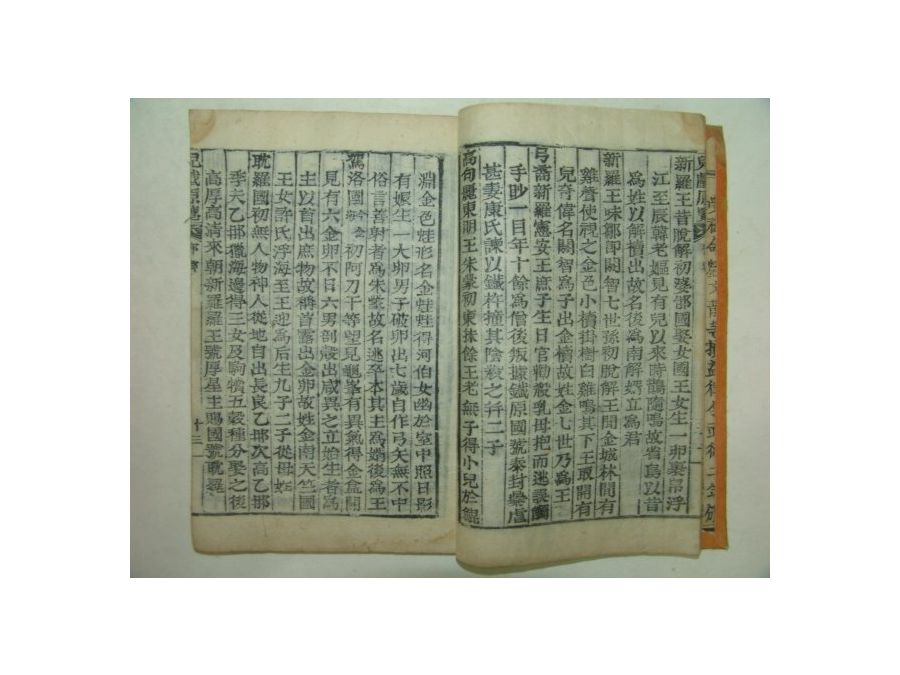 新羅王昔脫解初琓那國娶女國王女生一卵裹帛浮
江至辰韓老嫗見有兒以來時鵲隨鳴故省爲以昔
爲姓以解櫝出故名後爲南解壻立爲君
新羅王味鄒卽閼智七世孫初脫解王聞金城林間有
雞聲使視之金色小櫝掛樹白雞鳴其下王取開有
兒奇偉名閼智爲子出金櫝故姓金七世乃爲王
弓裔新羅憲安王庶子生日官勸殺乳母抱而逃誤觸
手眇一目年十餘爲僧後叛據鐵原國號泰封
甚妻康氏諫以鐵杵撞其陰殺之幷二子
高句麗東明王朱蒙初東扶餘王老無子得小兒於鯤
淵金色蛙形名金蛙蛙得河伯女幽於室中照日影
有娠生一大卵男子破卵出七歲自作弓矢無不中
俗言善射者爲朱蒙故名逃卒本其主爲婿後爲王
駕洛國 初阿刀干等望見龜峯有異氣得金盒開
見有六金卵不日六男剖殼出咸異之立始生者爲
主以首出庶物故稱首露出金卵故姓金南天竺國
王女許氏浮海至王迎爲后生九子二子從母姓
耽羅國初無人物神人從地自出長良乙那次高乙那
季夫乙那獵海邊得三女及駒犢五穀種分娶之後
高厚高淸來朝新羅王號厚星主賜國號耽羅
兒戱原覽
十三